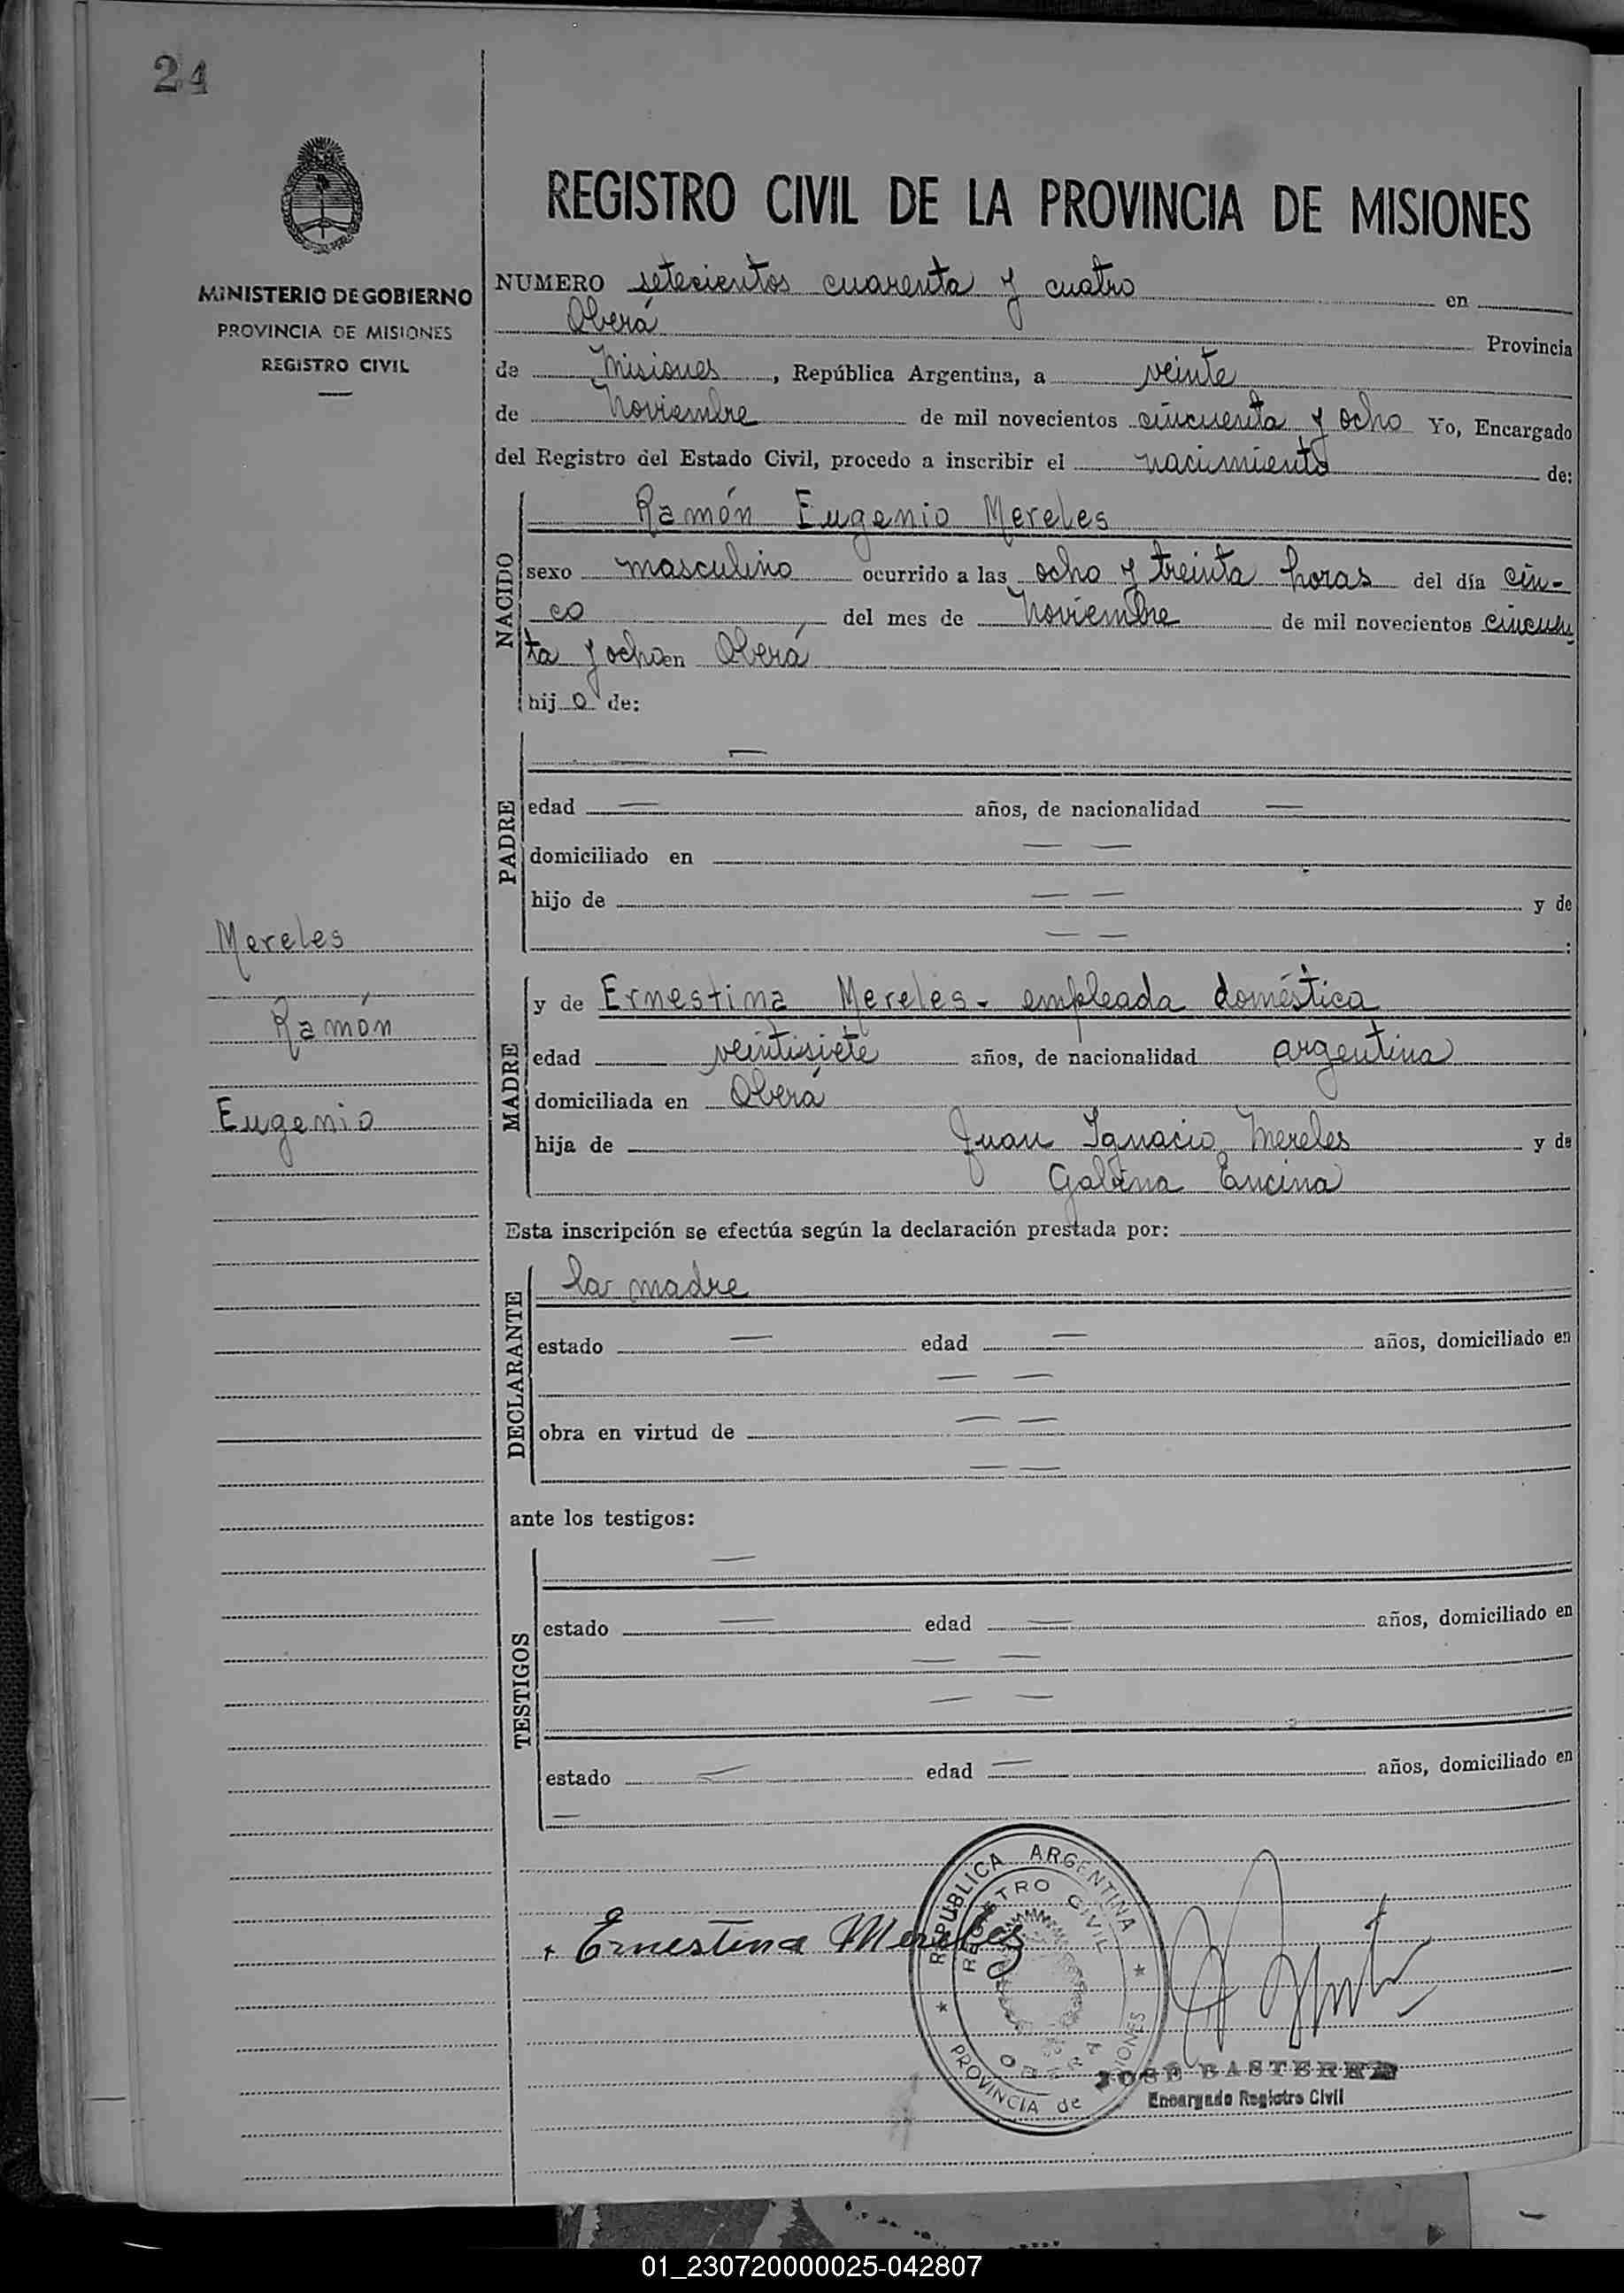 24
MINISTERIO DE GOBIERNO
PROVINCIA DE MISIONES
REGISTRO CIVIL
Mereles
Ramón
Eugenio
REGISTRO CIVIL DE LA PROVINCIA DE MISIONES
NUMERO setecientos cuarenta y cuatro en
Oberá Provincia
de Misiones, República Argentina, a veinte
de Noviembre de mil novecientos cincuenta y ocho Yo, Encargado
del Registro del Estado Civil, procedo a inscribir el nacimiento de:
NACIDO
Ramón Eugenio Mereles
sexo masculino ocurrido a las ocho y treinta horas del día cin-
co del mes de Noviembre de mil novecientos cincuen
ta y ocho en Oberá
hijo de:
PADRE
— —
edad — años, de nacionalidad —
domiciliado en — —
hijo de — — y de
— — :
MADRE
y de Ernestina Mereles - empleada doméstica
edad veintisiete años, de nacionalidad argentina
domiciliada en Oberá
hija de Juan Ignacio Mereles y de
Gabina Encina
Esta inscripción se efectúa según la declaración prestada por:
DECLARANTE
la madre
estado — edad — años, domiciliado en
— —
obra en virtud de — —
— —
ante los testigos:
TESTIGOS
—
estado — edad — años, domiciliado en
— —
— —
estado — edad — años, domiciliado en
—
Ernestina Mereles
REPUBLICA ARGENTINA
REGISTRO CIVIL
OBERA
PROVINCIA de MISIONES
JOSÉ BASTERRA
Encargado Registro Civil
01_230720000025-042807